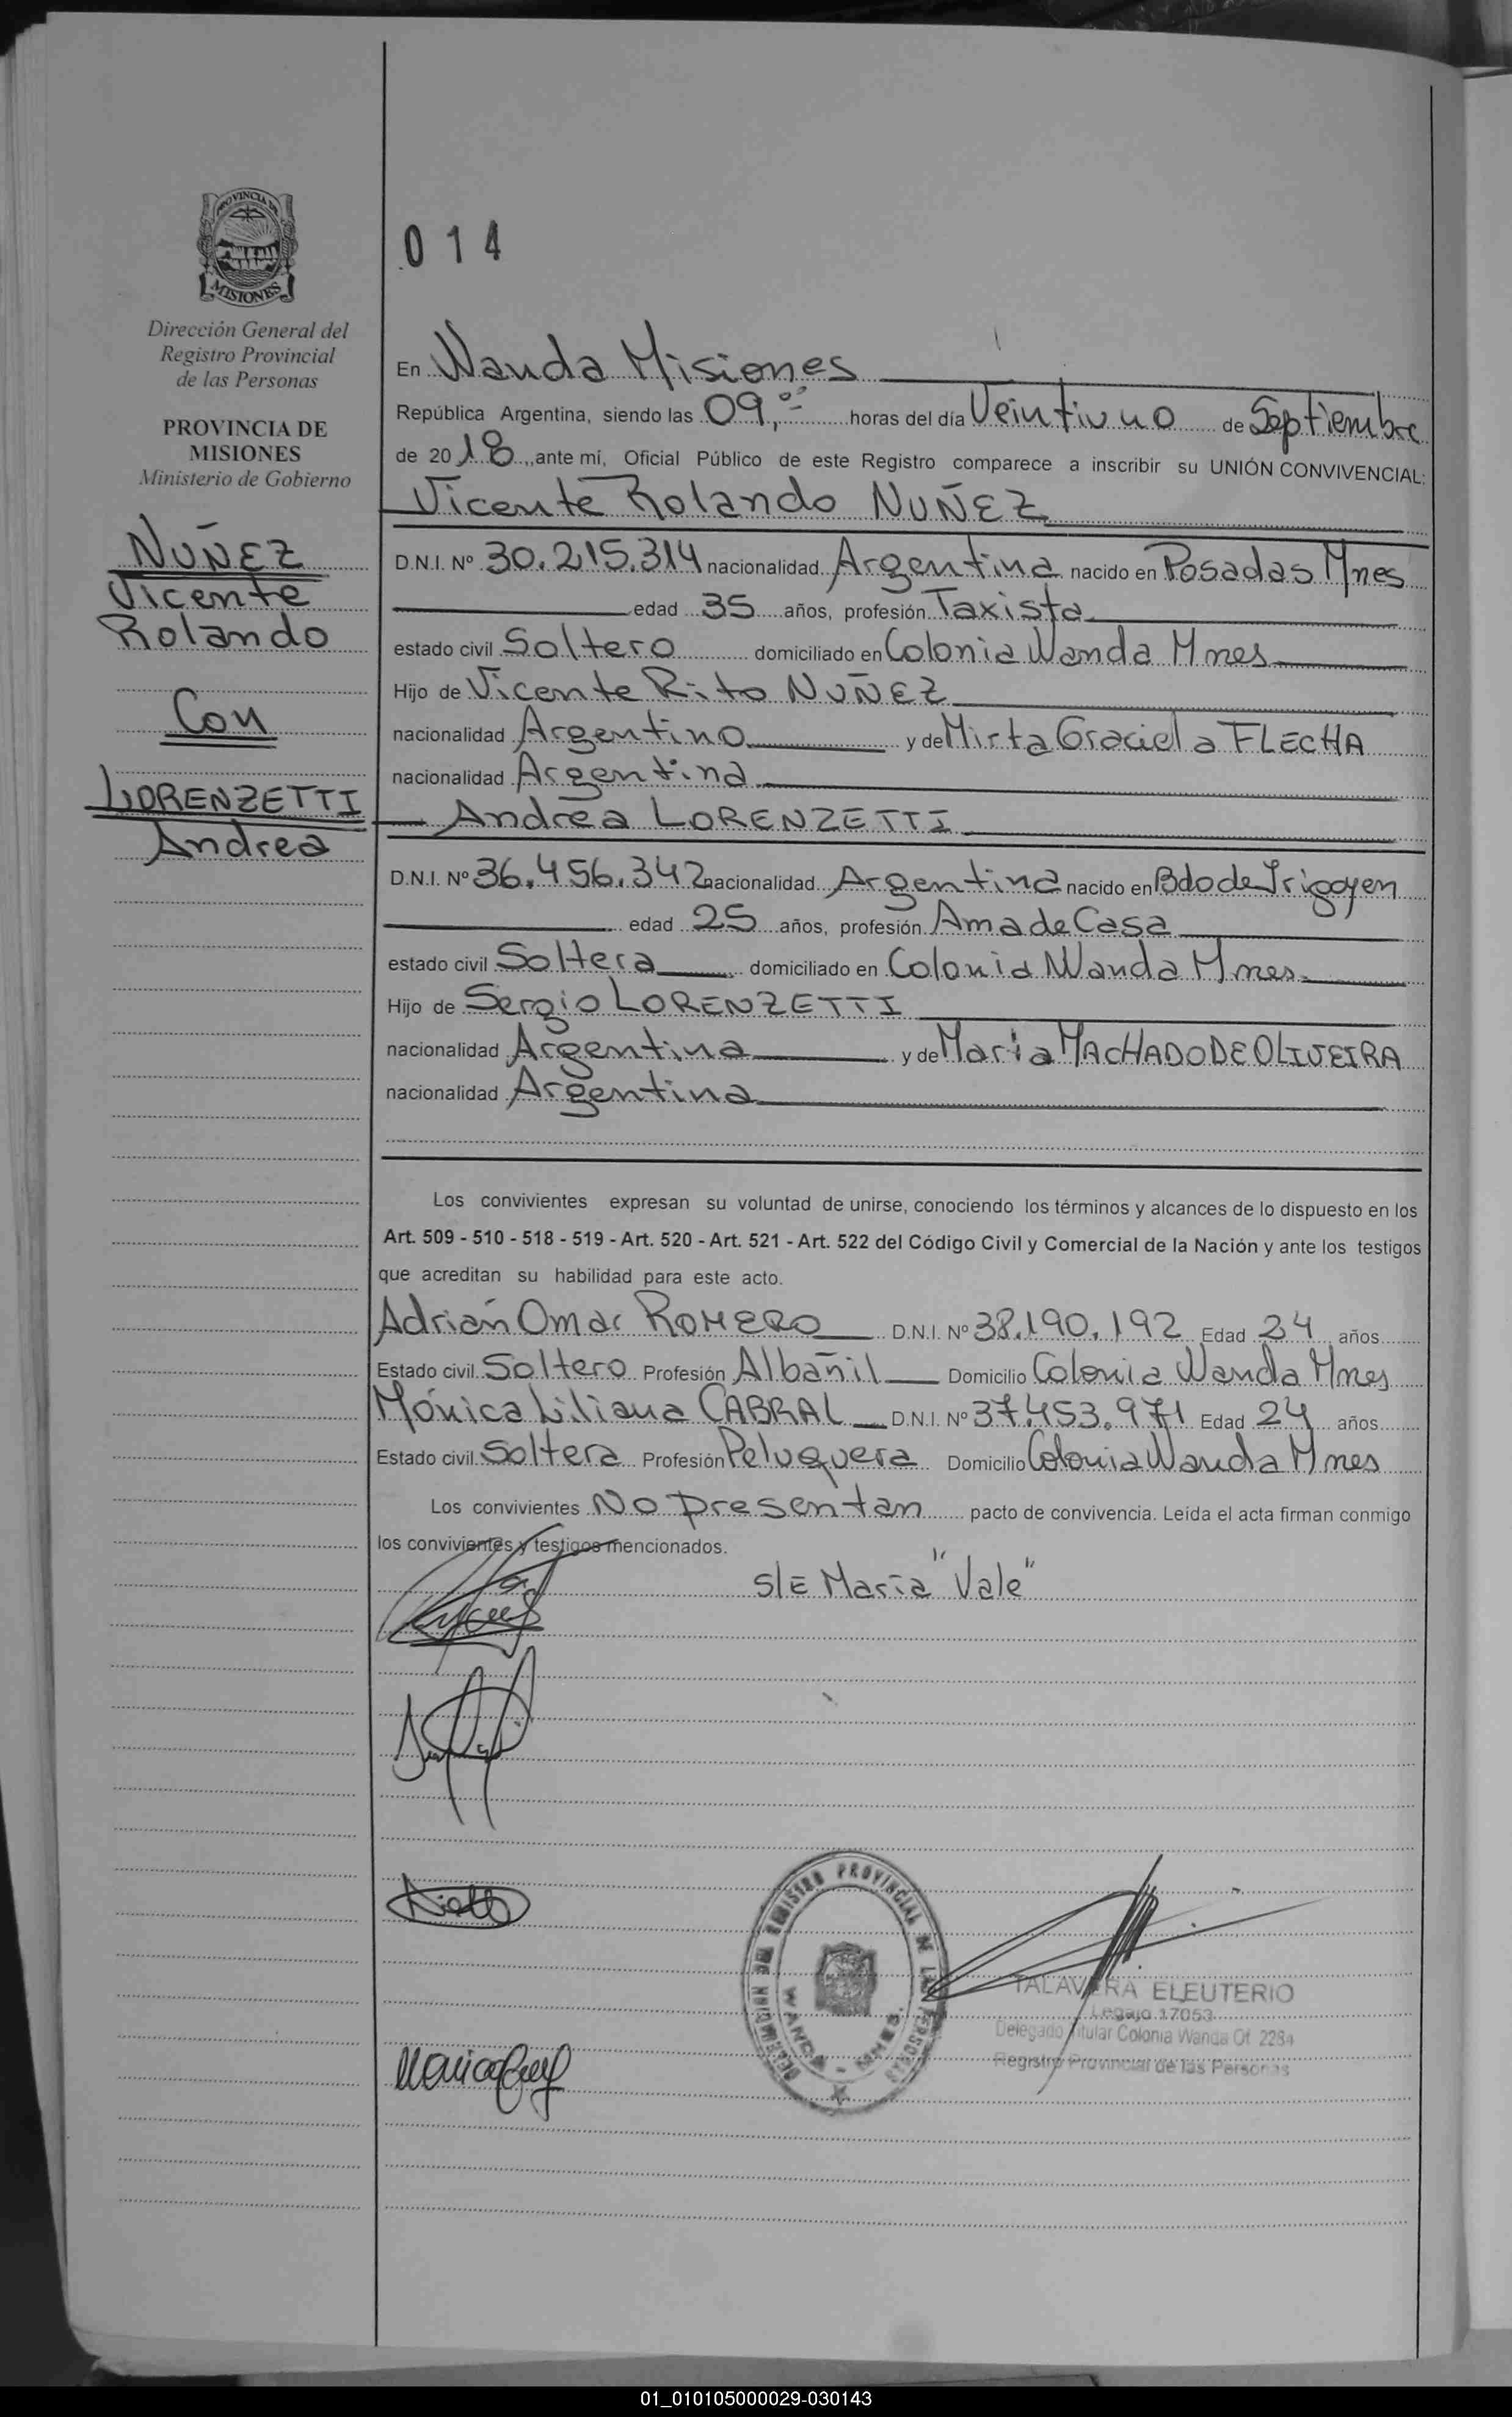 PROVINCIA DE
MISIONES
Dirección General del
Registro Provincial
de las Personas
PROVINCIA DE
MISIONES
Ministerio de Gobierno
NUÑEZ
Vicente
Rolando
Con
LORENZETTI
Andrea
014
En Wanda Misiones
República Argentina, siendo las 09,00 horas del día Veintiuno de Septiembre
de 2018, ante mí, Oficial Público de este Registro comparece a inscribir su UNIÓN CONVIVENCIAL:
Vicente Rolando NUÑEZ
D.N.I. Nº 30.215.314 nacionalidad Argentina nacido en Posadas Mnes
edad 35 años, profesión Taxista
estado civil Soltero domiciliado en Colonia Wanda Mnes
Hijo de Vicente Rito NUÑEZ
nacionalidad Argentino y de Mirta Graciela FLECHA
nacionalidad Argentina
Andrea LORENZETTI
D.N.I. Nº 36.456.342 nacionalidad Argentina nacido en Bdo de Irigoyen
edad 25 años, profesión Ama de Casa
estado civil Soltera domiciliado en Colonia Wanda Mnes
Hijo de Sergio LORENZETTI
nacionalidad Argentina y de Maria MACHADO DE OLIVEIRA
nacionalidad Argentina
Los convivientes expresan su voluntad de unirse, conociendo los términos y alcances de lo dispuesto en los
Art. 509 - 510 - 518 - 519 - Art. 520 - Art. 521 - Art. 522 del Código Civil y Comercial de la Nación y ante los testigos
que acreditan su habilidad para este acto.
Adrián Omar ROMERO D.N.I. Nº 38.190.192 Edad 24 años
Estado civil Soltero Profesión Albañil Domicilio Colonia Wanda Mnes
Mónica Liliana CABRAL D.N.I. Nº 37.453.971 Edad 24 años
Estado civil Soltera Profesión Peluquera Domicilio Colonia Wanda Mnes
Los convivientes No presentan pacto de convivencia. Leída el acta firman conmigo
los convivientes y testigos mencionados.
S/E Maria "Vale"
REGISTRO PROVINCIAL DE LAS PERSONAS
WANDA - MNES.
TALAVERA ELEUTERIO
Legajo 17053
Delegado Titular Colonia Wanda Of. 2284
Registro Provincial de las Personas
01_010105000029-030143